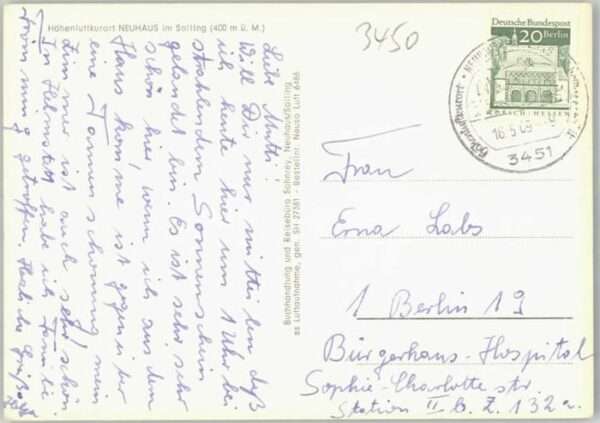 Höhenluftkurort NEUHAUS im Solling (400 m ü. M.)
Liebe Mutti!
Will Dir nur mitteilen, daß
ich heute hier um 1 Uhr bei
strahlendem Sonnenschein
gelandet bin. Es ist sehr sehr
schön hier wenn ich aus dem
Haus komme ist gegenüber
eine Tannenschonung mein
Zimmer ist auch sehr schön
In Helmstedt habe ich Familie
getroffen, Herzliche Grüße
Buchhandlung und Reisebüro Sohnrey, Neuhaus/Solling
as Luftaufnahme, gen. SH 27381 - Bestellnr. Neuso Luft 6486
3450
Deutsche Bundespost
20 Berlin
LORSCH HESSEN
Höhenluftkurort
16.5.69
3451
Frau
Erna Labs
1 Berlin 19
Bürgerhaus-Hospital
Sophie-Charlotte str.
Station II b. Z. 132a.